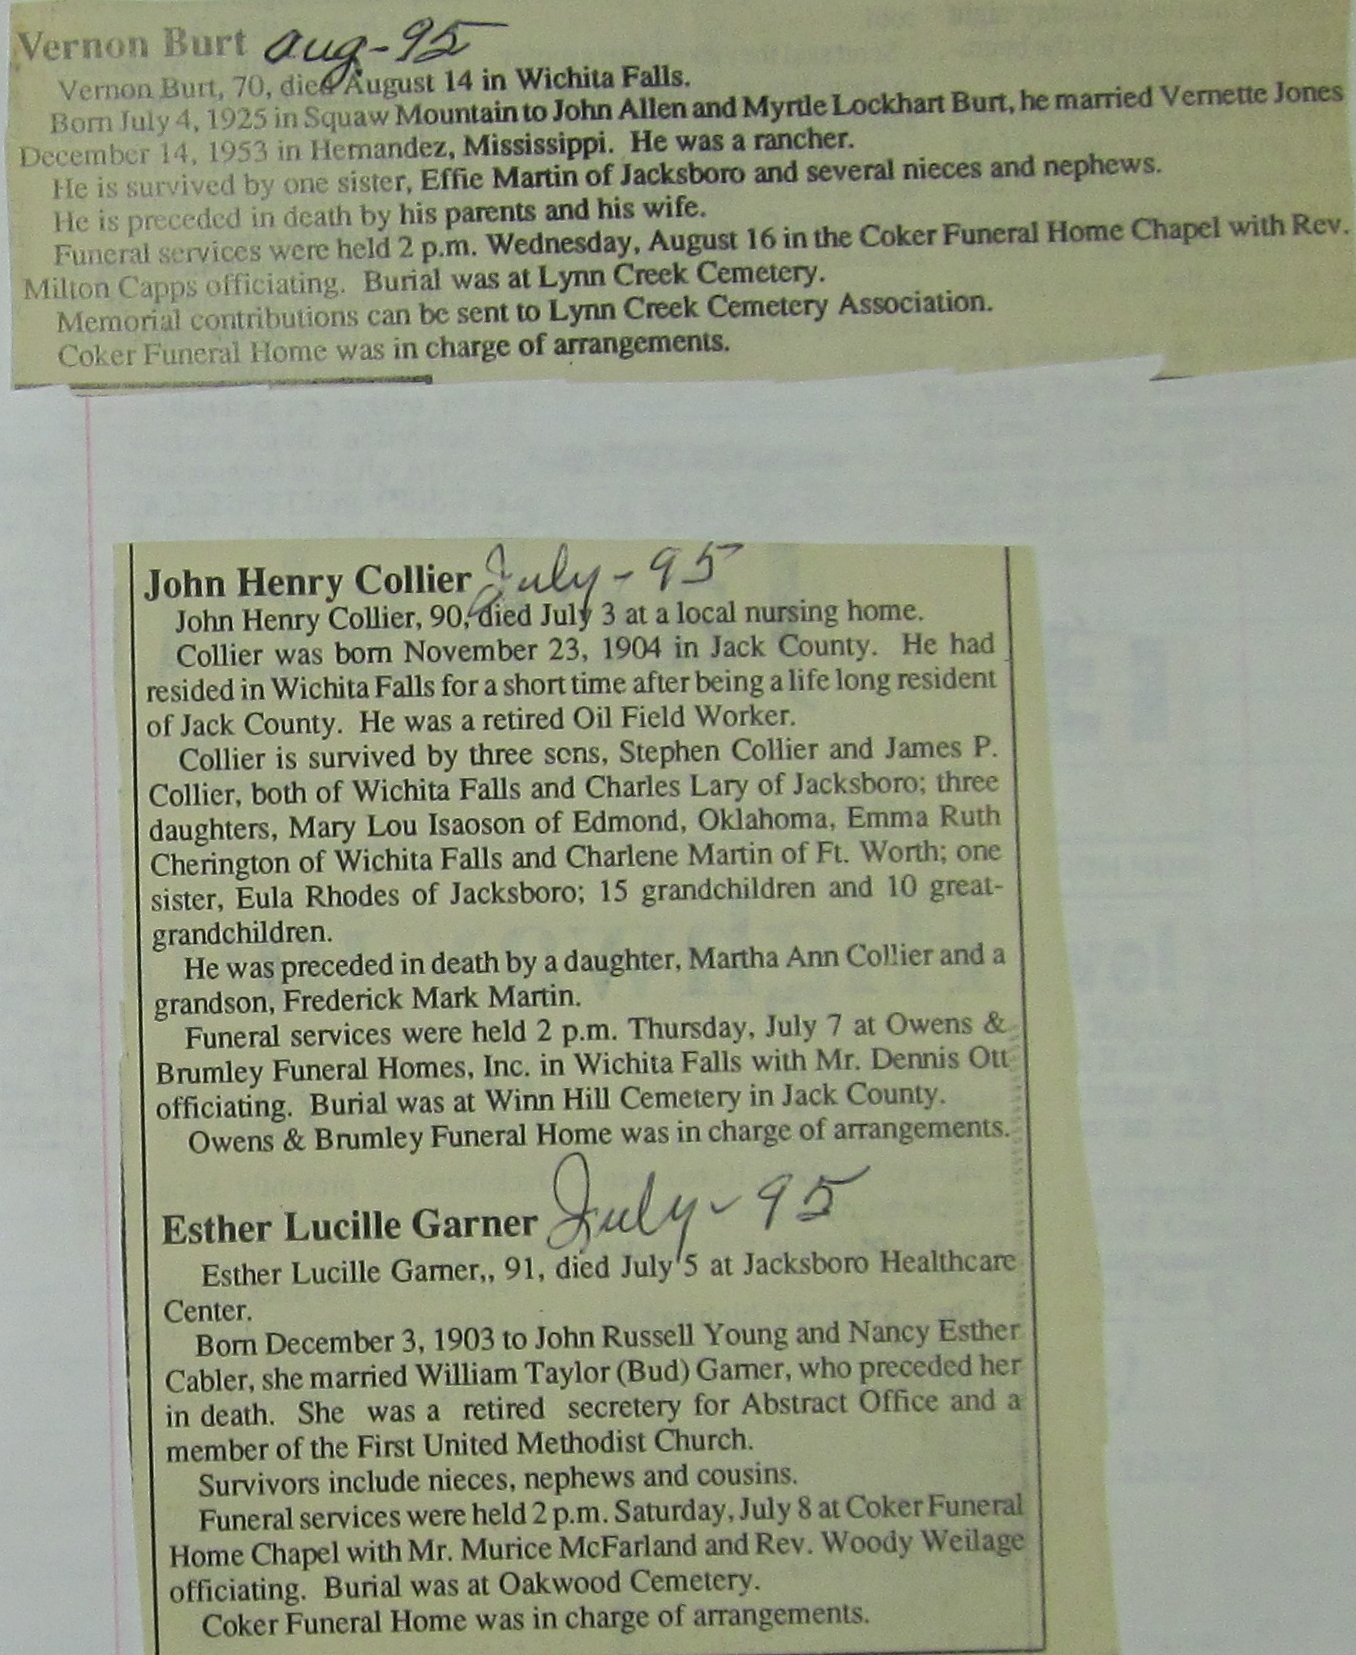 Vernon Burt aug-95
Vernon Burt, 70, died August 14 in Wichita Falls.
Born July 4, 1925 in Squaw Mountain to John Allen and Myrtle Lockhart Burt, he married Vernette Jones
December 14, 1953 in Hernandez, Mississippi. He was a rancher.
He is survived by one sister, Effie Martin of Jacksboro and several nieces and nephews.
He is preceded in death by his parents and his wife.
Funeral services were held 2 p.m. Wednesday, August 16 in the Coker Funeral Home Chapel with Rev.
Milton Capps officiating. Burial was at Lynn Creek Cemetery.
Memorial contributions can be sent to Lynn Creek Cemetery Association.
Coker Funeral Home was in charge of arrangements.
John Henry Collier July-95
John Henry Collier, 90, died July 3 at a local nursing home.
Collier was born November 23, 1904 in Jack County. He had
resided in Wichita Falls for a short time after being a life long resident
of Jack County. He was a retired Oil Field Worker.
Collier is survived by three sons, Stephen Collier and James P.
Collier, both of Wichita Falls and Charles Lary of Jacksboro; three
daughters, Mary Lou Isaoson of Edmond, Oklahoma, Emma Ruth
Cherington of Wichita Falls and Charlene Martin of Ft. Worth; one
sister, Eula Rhodes of Jacksboro; 15 grandchildren and 10 great-
grandchildren.
He was preceded in death by a daughter, Martha Ann Collier and a
grandson, Frederick Mark Martin.
Funeral services were held 2 p.m. Thursday, July 7 at Owens &
Brumley Funeral Homes, Inc. in Wichita Falls with Mr. Dennis Ott
officiating. Burial was at Winn Hill Cemetery in Jack County.
Owens & Brumley Funeral Home was in charge of arrangements.
Esther Lucille Garner July-95
Esther Lucille Garner,, 91, died July 5 at Jacksboro Healthcare
Center.
Born December 3, 1903 to John Russell Young and Nancy Esther
Cabler, she married William Taylor (Bud) Garner, who preceded her
in death. She was a retired secretery for Abstract Office and a
member of the First United Methodist Church.
Survivors include nieces, nephews and cousins.
Funeral services were held 2 p.m. Saturday, July 8 at Coker Funeral
Home Chapel with Mr. Murice McFarland and Rev. Woody Weilage
officiating. Burial was at Oakwood Cemetery.
Coker Funeral Home was in charge of arrangements.